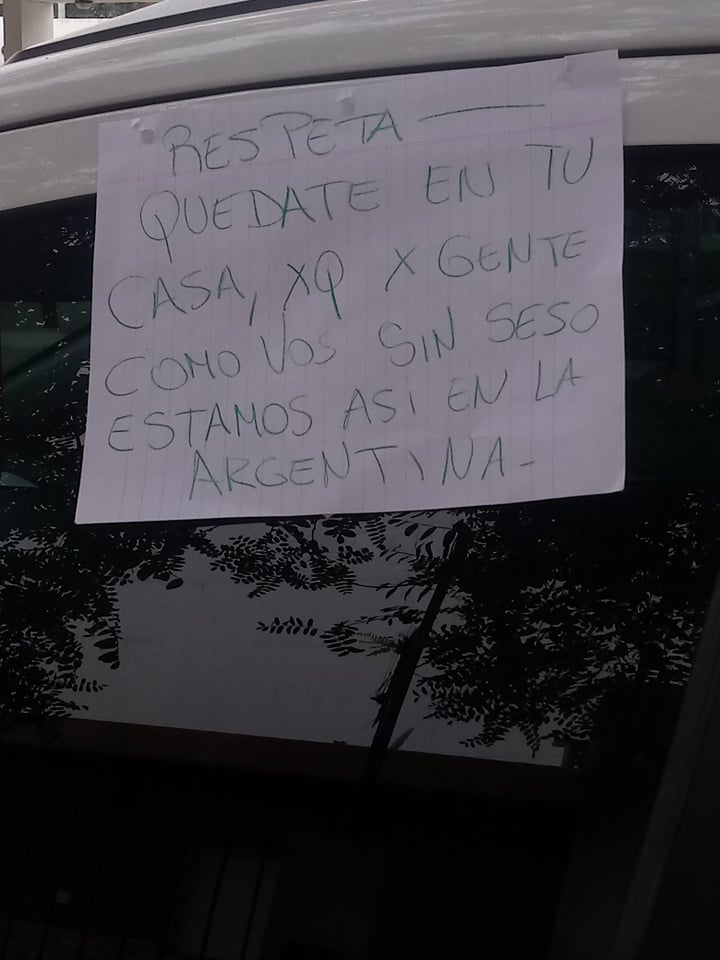 RESPETA —
QUEDATE EN TU
CASA, XQ X GENTE
COMO VOS SIN SESO
ESTAMOS ASI EN LA
ARGENTINA-